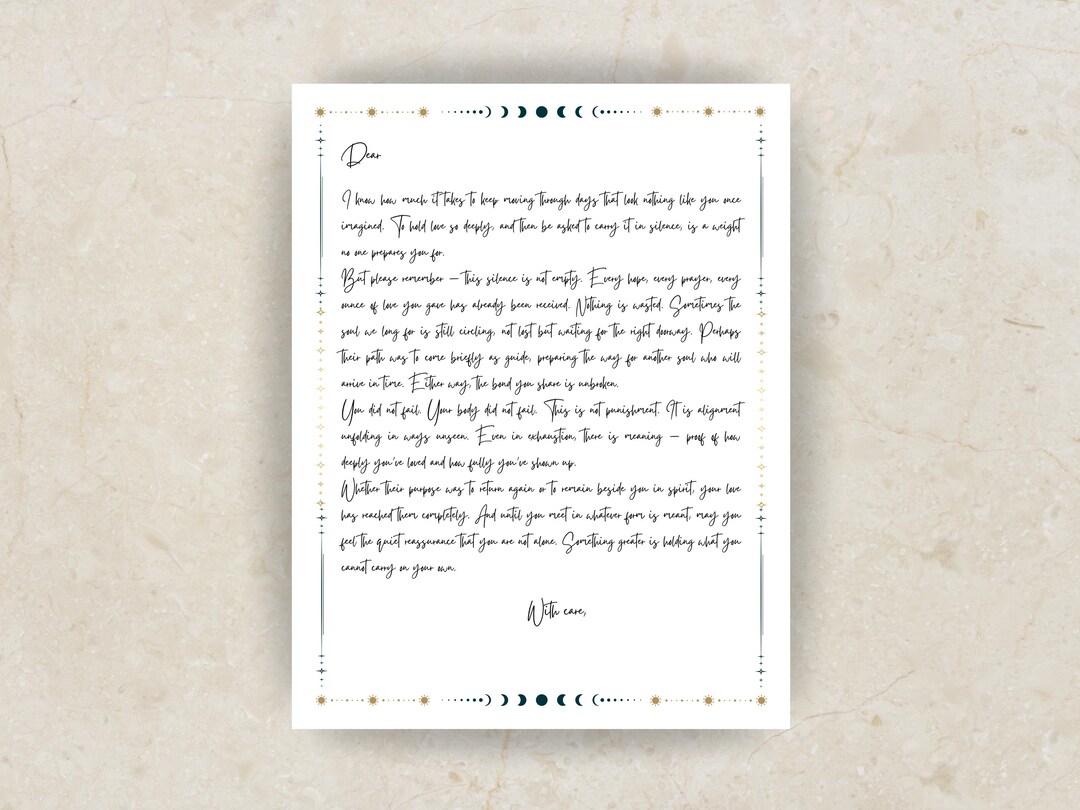 Dear
I know how much it takes to keep moving through days that look nothing like you once
imagined. To hold love so deeply, and then be asked to carry it in silence, is a weight
no one prepares you for.
But please remember — this silence is not empty. Every hope, every prayer, every
ounce of love you gave has already been received. Nothing is wasted. Sometimes the
soul we long for is still circling, not lost but waiting for the right doorway. Perhaps
their path was to come briefly as guide, preparing the way for another soul who will
arrive in time. Either way, the bond you share is unbroken.
You did not fail. Your body did not fail. This is not punishment. It is alignment
unfolding in ways unseen. Even in exhaustion, there is meaning — proof of how
deeply you've loved and how fully you've shown up.
Whether their purpose was to return again or to remain beside you in spirit, your love
has reached them completely. And until you meet in whatever form is meant, may you
feel the quiet reassurance that you are not alone. Something greater is holding what you
cannot carry on your own.
With care,